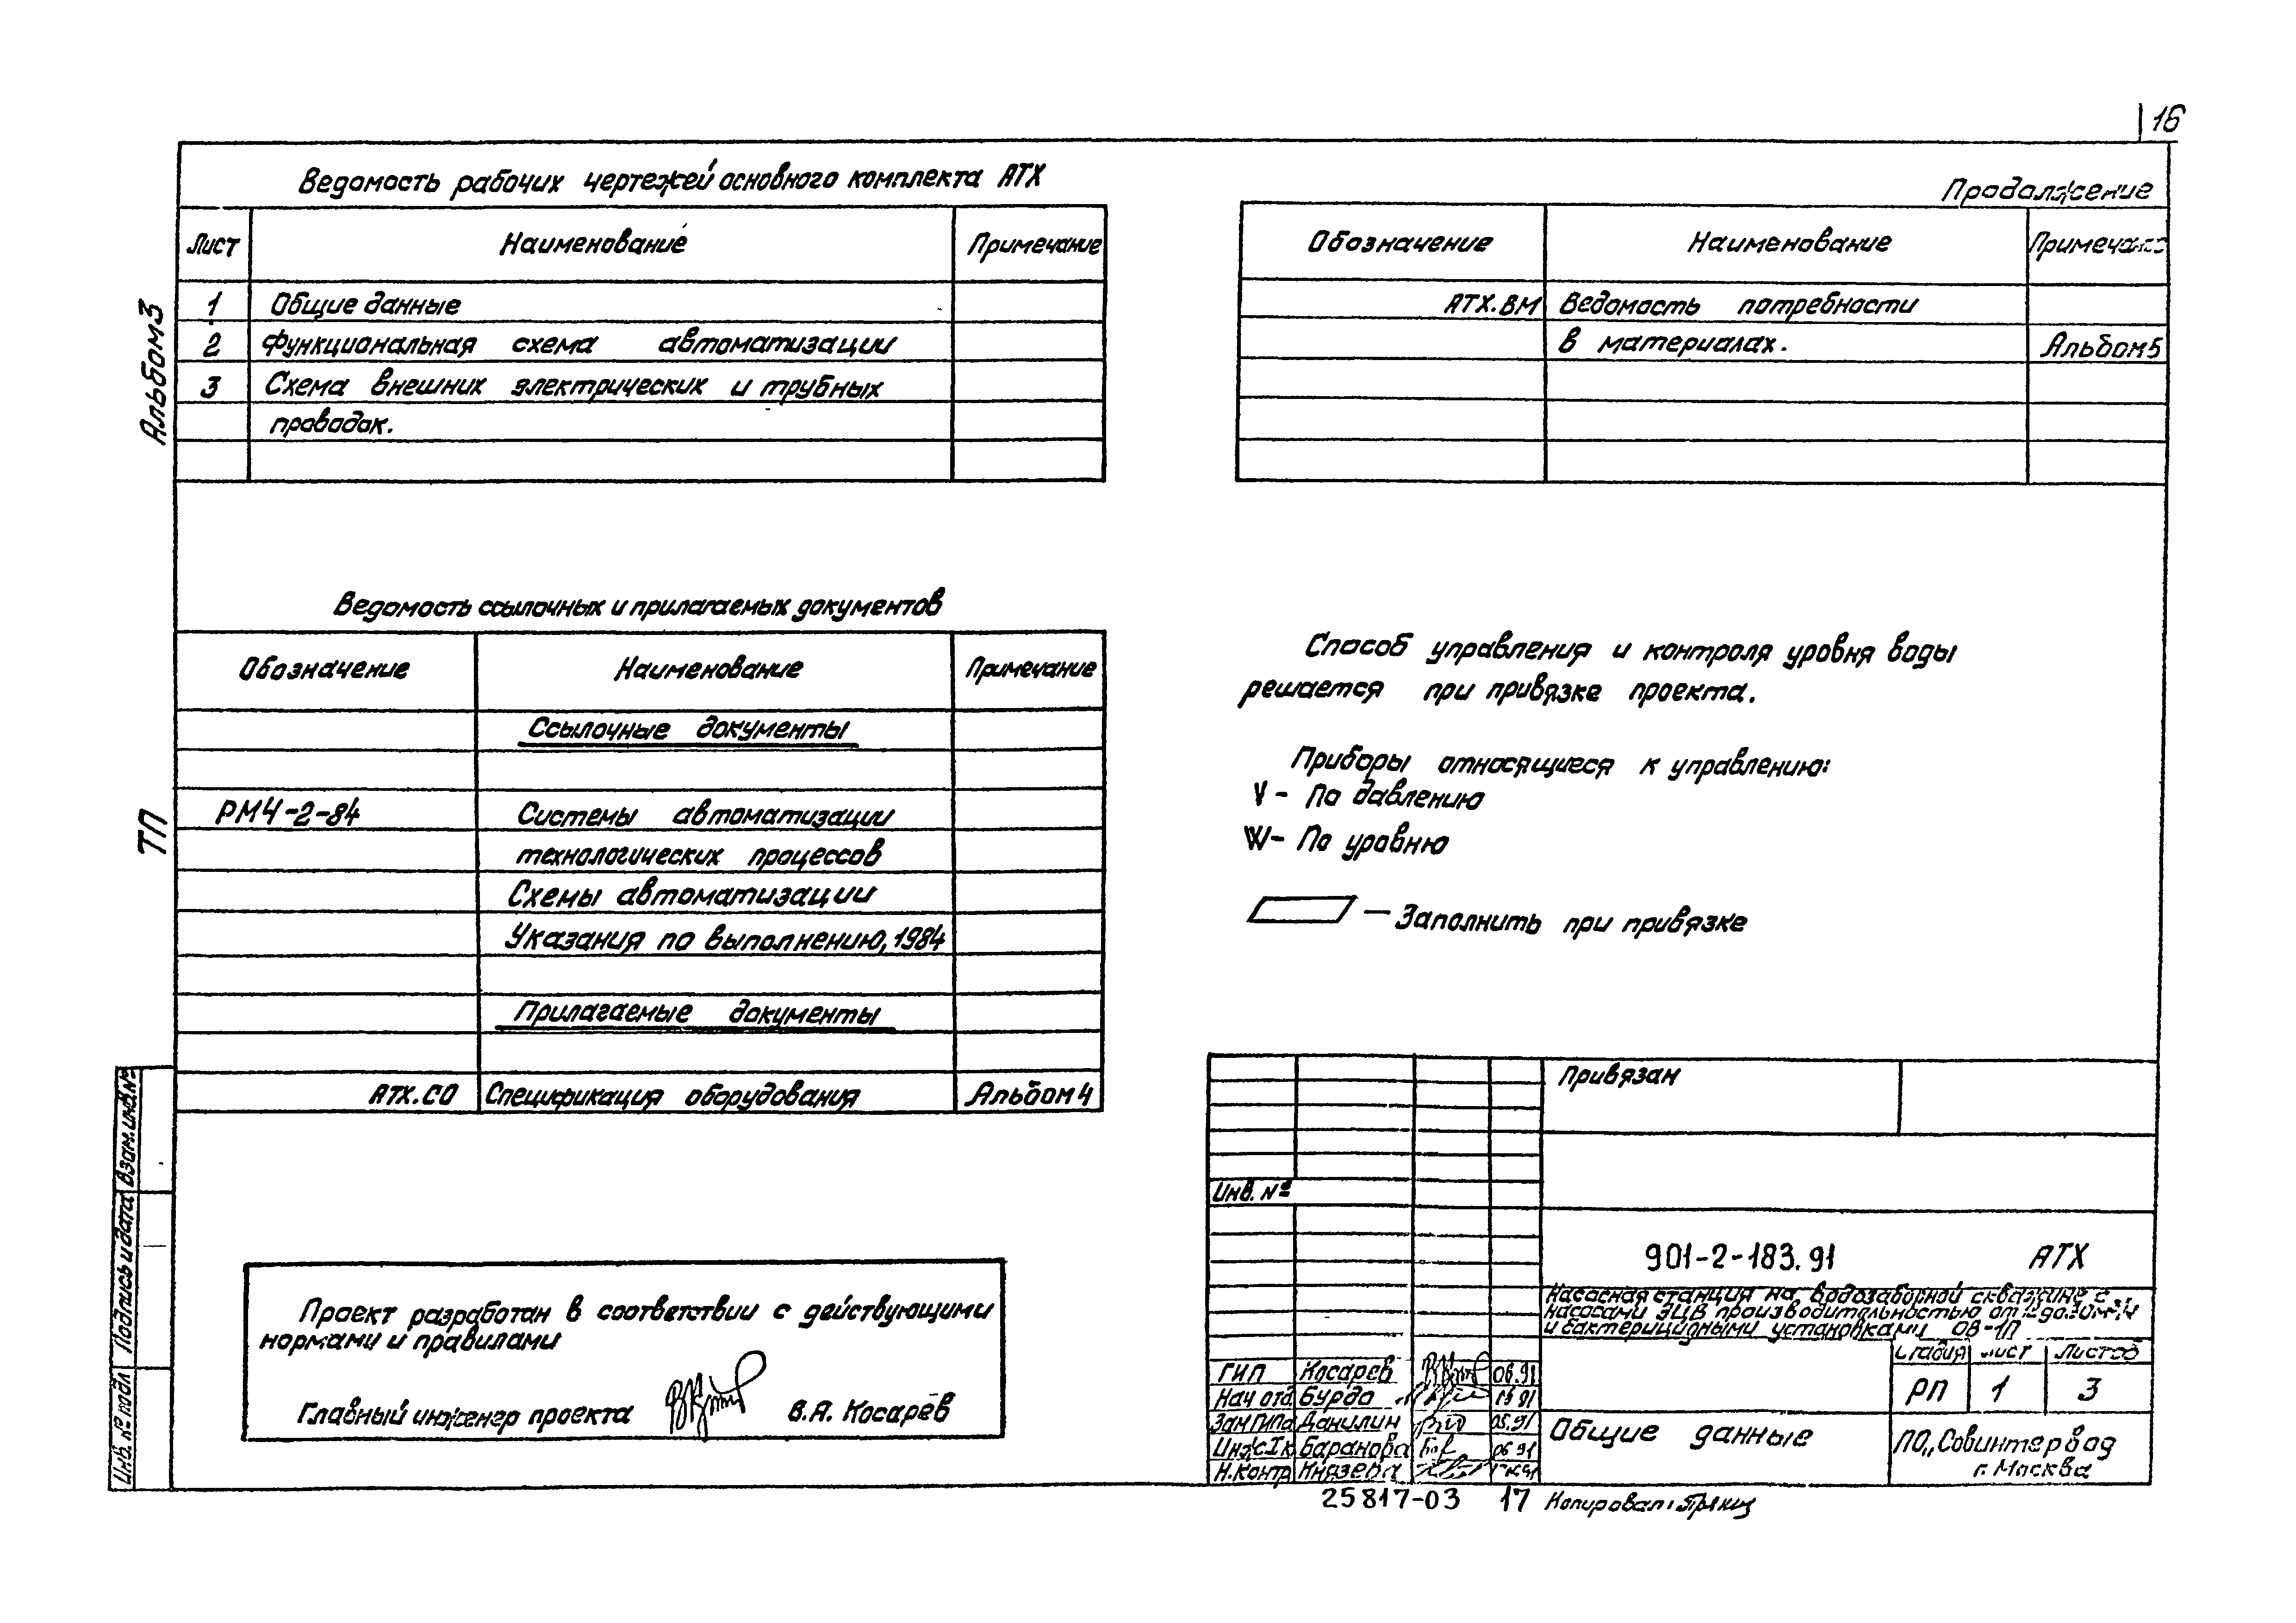 16
Альбом 3
ТП
Ведомость рабочих чертежей основного комплекта АТХ
Лист Наименование Примечание
1 Общие данные
2 Функциональная схема автоматизации
3 Схема внешних электрических и трубных
проводок.
Продолжение
Обозначение Наименование
АТХ.ВМ Ведомость потребности
в материалах. Альбом 5
Ведомость ссылочных и прилагаемых документов
Обозначение Наименование Примечание
Ссылочные документы
РМ4-2-84 Системы автоматизации
технологических процессов
Схемы автоматизации
Указания по выполнению, 1984
Прилагаемые документы
АТХ.СО Спецификация оборудования Альбом 4
Способ управления и контроля уровня воды
решается при привязке проекта.
Приборы относящиеся к управлению:
V - По давлению
W - По уровню
— Заполнить при привязке
Проект разработан в соответствии с действующими
нормами и правилами
Главный инженер проекта В.А. Косарев
Взам.инв.№
Подпись и дата
Инв. № подл
Привязан
Инв. №
901-2-183.91 АТХ
Насосная станция на водозаборной скважине с
насосами ЭЦВ производительностью от до
и бактерицидными установками ОВ-1П
Стадия Лист Листов
РП 1 3
ГИП Косарев 06.91
Нач отд. Бурда
Зам ГИПа Данилин
Инж I к Баранова 06 91
Н.контр Князева
Общие данные
ПО „Совинтервод
г. Москва
25817-03 17 Копировал: